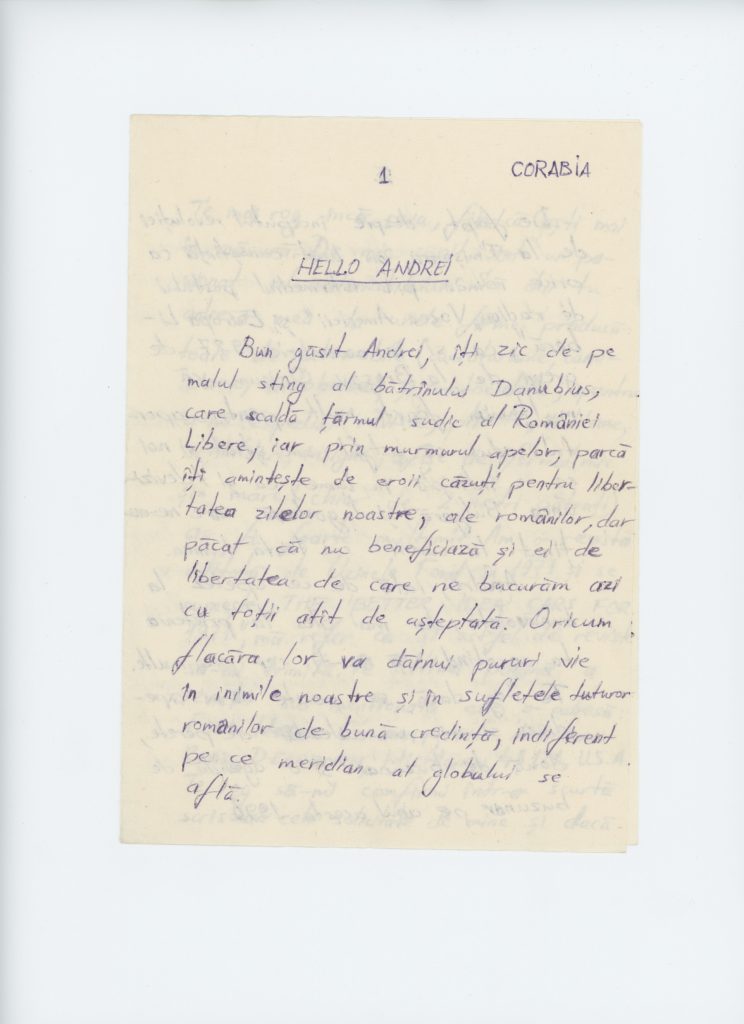 1
CORABIA
HELLO ANDREI
Bun găsit Andrei, îți zic de pe
malul stîng al bătrînului Danubius,
care scaldă țărmul sudic al României
Libere, iar prin murmurul apelor, parcă
îți amintește de eroii căzuți pentru liber-
tatea zilelor noastre, ale românilor, dar
păcat că nu beneficiază și ei de
libertatea de care ne bucurăm azi
cu toții atît de așteptată. Oricum
flacăra lor va dăinui pururi vie
în inimile noastre și în sufletele tuturor
românilor de bună credință, indiferent
pe ce meridian al globului se
află.